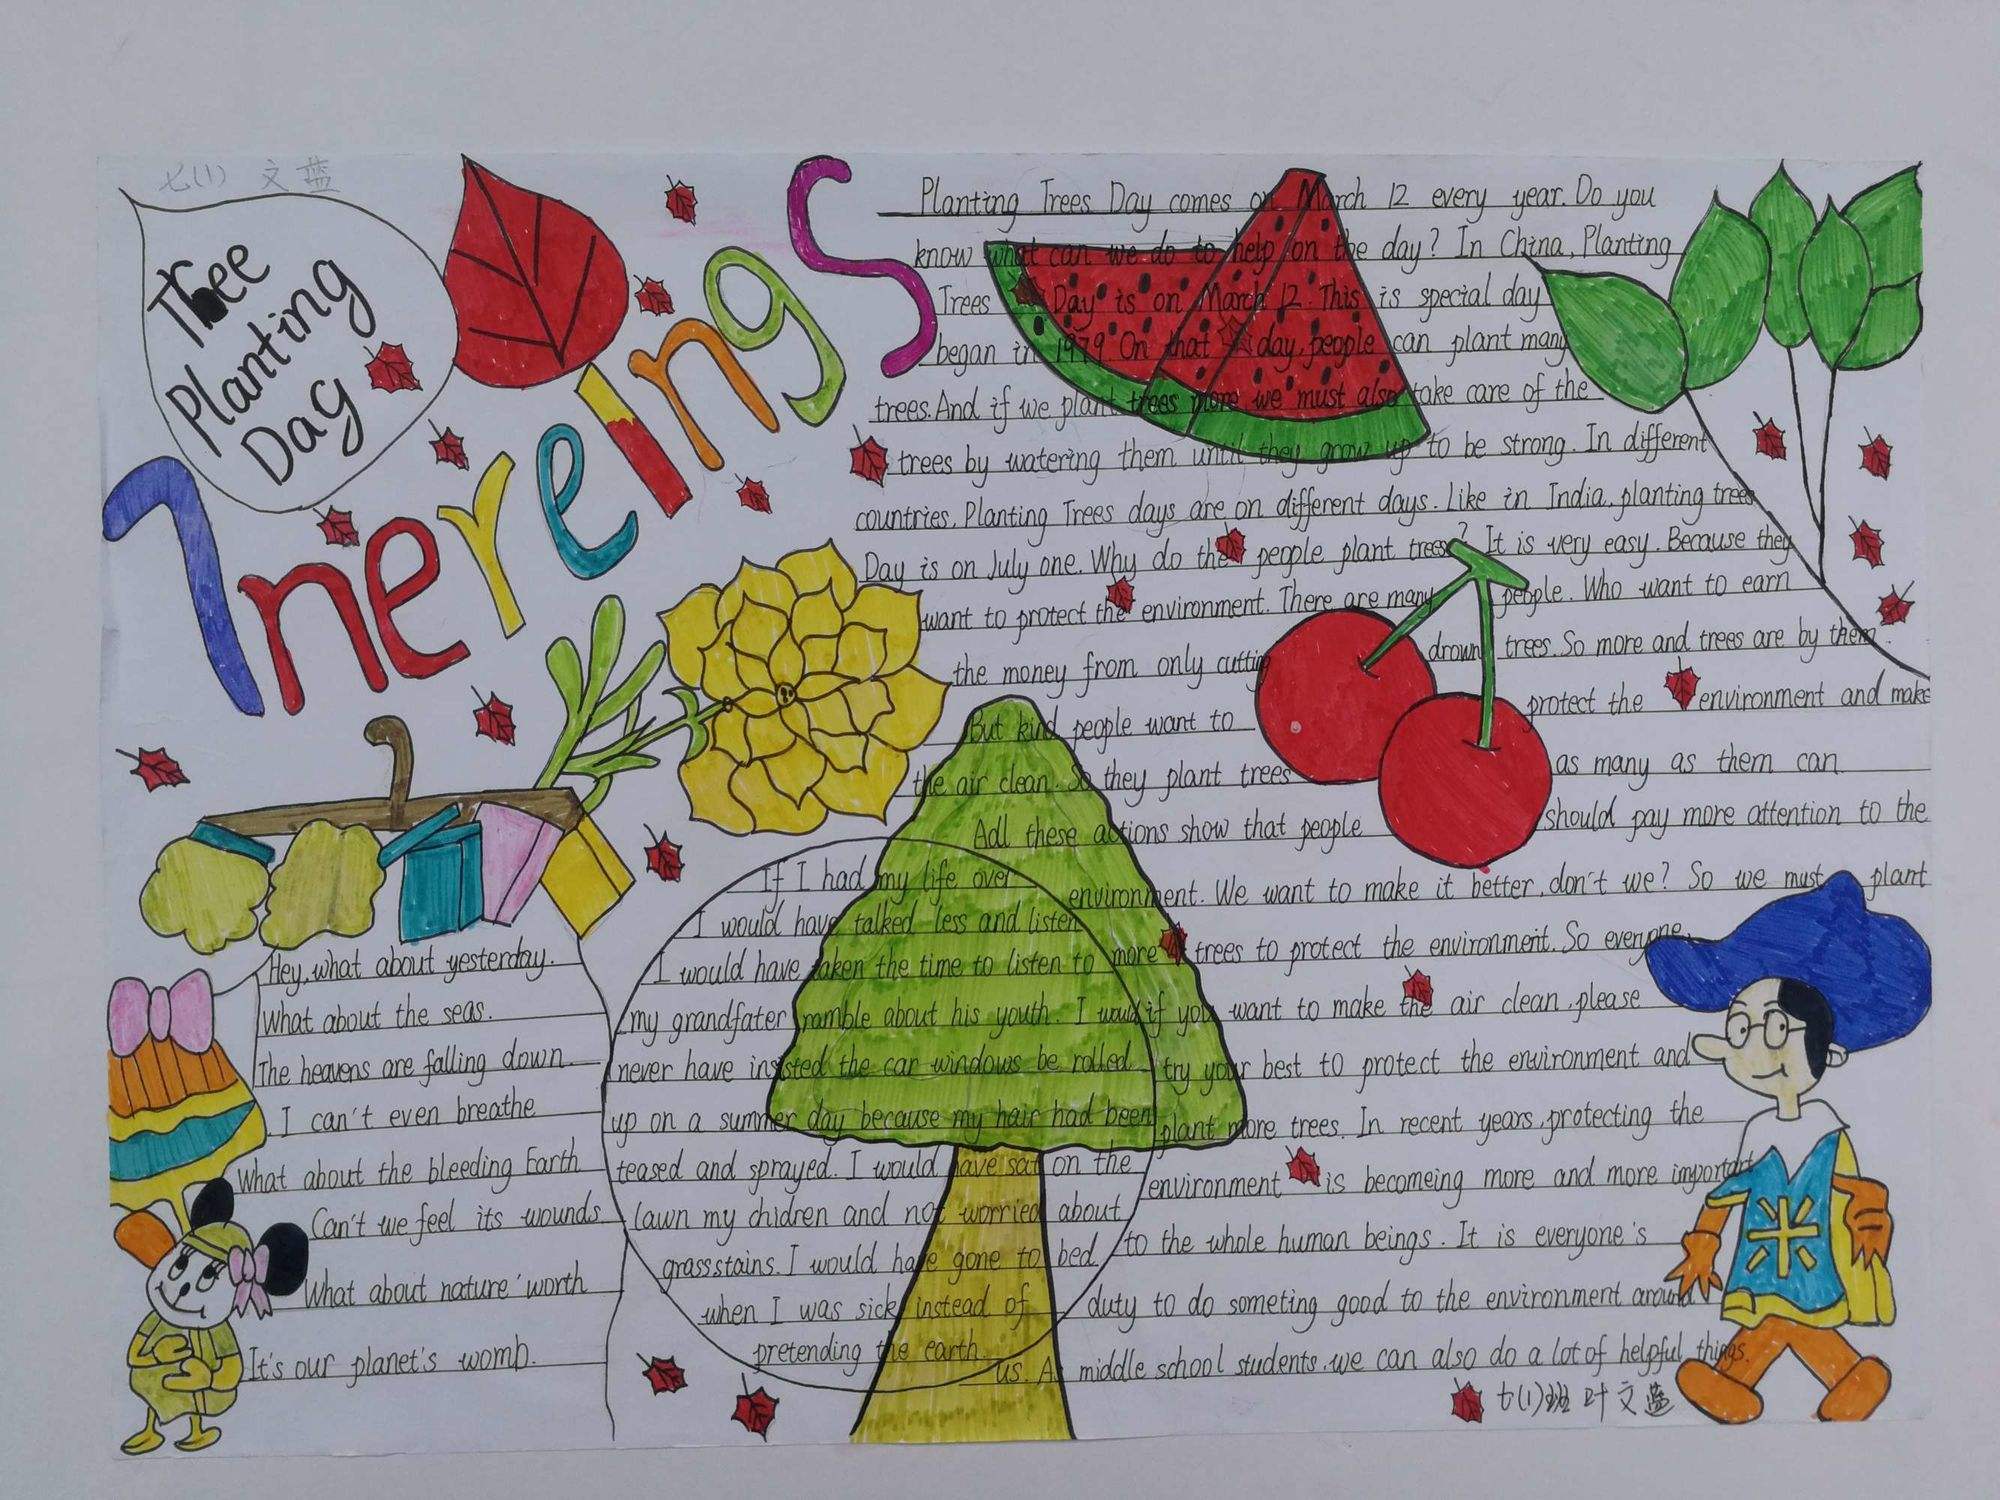 七(1) 文蓝
Tree
Planting
Day
Inereings
Planting Trees Day comes on March 12 every year. Do you
know what can we do to help on the day? In China, Planting
Trees Day is on March 12. This is special day
began in 1979. On that day, people can plant many
trees. And if we plant trees more we must also take care of the
trees by watering them until they grow up to be strong. In different
countries, Planting Trees days are on different days. Like in India, planting trees
Day is on July one. Why do the people plant trees? It is very easy. Because they
want to protect the environment. There are many people. Who want to earn
the money from only cutting drown trees. So more and trees are by them.
But kind people want to protect the environment and make
the air clean. So they plant trees as many as them can
Adl these actions show that people should pay more attention to the
environment. We want to make it better, don't we? So we must plant
more trees to protect the environment. So everyone,
if you want to make the air clean, please
try your best to protect the environment and
plant more trees. In recent years, protecting the
environment is becomeing more and more important
to the whole human beings. It is everyone's
duty to do someting good to the environment around
us. As middle school students, we can also do a lot of helpful things.
七(1)班 叶文蓝
If I had my life over
I would have talked less and listen
I would have taken the time to listen to
my grandfater ramble about his youth. I would
never have insisted the car windows be rolled
up on a summer day because my hair had been
teased and sprayed. I would have sat on the
lawn my chidren and not worried about
grass stains. I would have gone to bed
when I was sick instead of
pretending the earth.
Hey, what about yesterday.
What about the seas.
The heavens are falling down
I can't even breathe
What about the bleeding Earth
Can't we feel its wounds
What about nature'worth
It's our planet's womb.